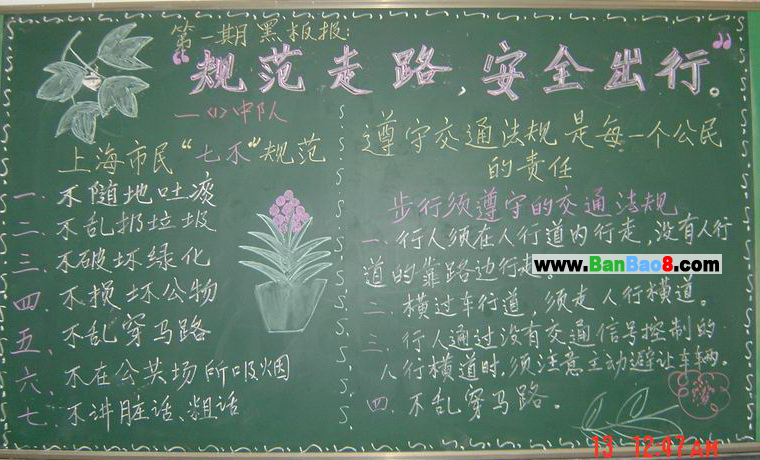 第一期黑板报:
“规范走路,安全出行。”
一(1)中队
上海市民“七不”规范
一、不随地吐痰
二、不乱扔垃圾
三、不破坏绿化
四、不损坏公物
五、不乱穿马路
六、不在公共场所吸烟
七、不讲脏话、粗话
遵守交通法规是每一个公民
的责任
步行须遵守的交通法规
一、行人须在人行道内行走,没有人行
道的靠路边行走。
二、横过车行道,须走人行横道。
三、行人通过没有交通信号控制的
人行横道时,须注意主动避让车辆。
四、不乱穿马路。
www.BanBao8.com
13 12:47AM